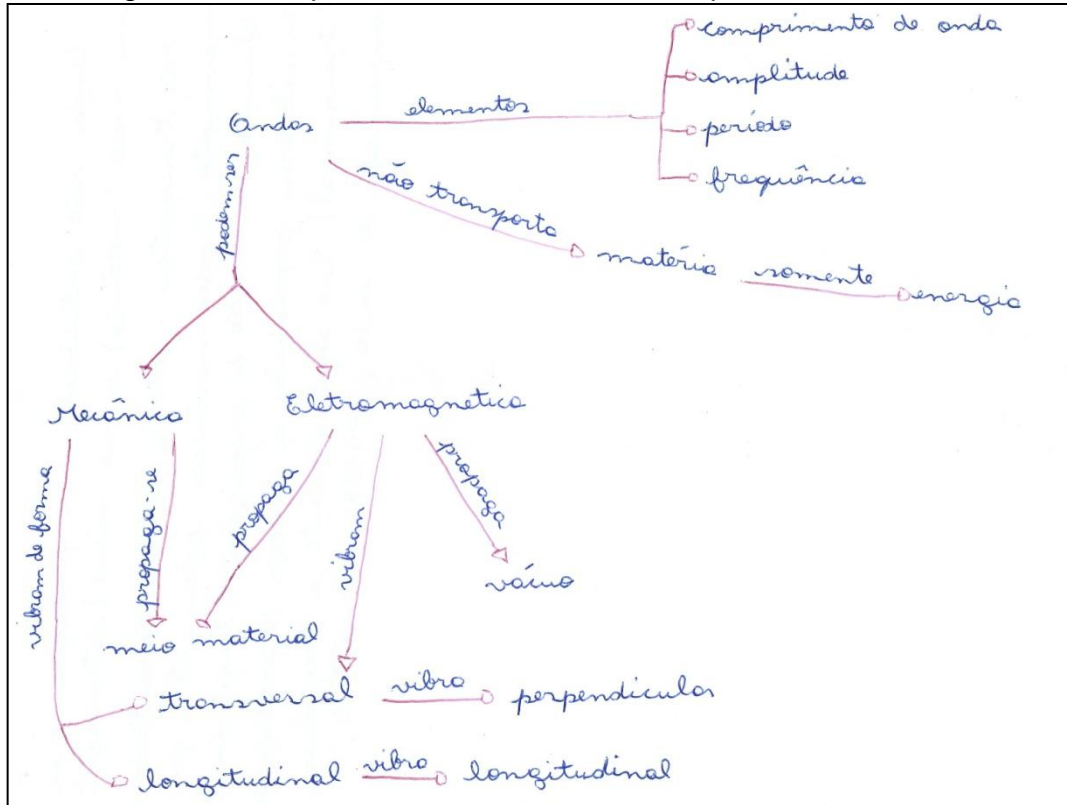 comprimento de onda
amplitude
elementos
Ondas
período
frequência
não transporta
podem ser
matéria somente energia
Mecânica
Eletromagnetica
vibram de forma
propaga-se
propaga
vibram
propaga
vácuo
meio material
transversal vibra perpendicular
longitudinal vibra longitudinal